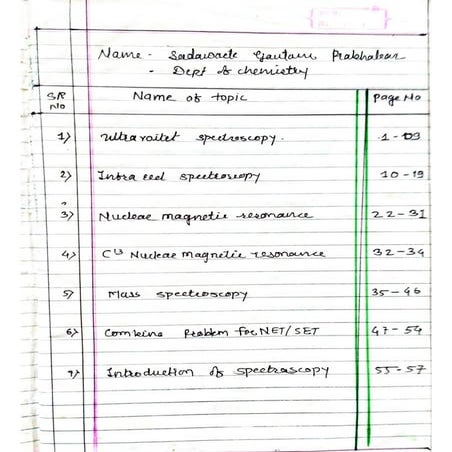 Name - Sadawarte Gautam Prabhakar
- Dept of chemistry
SR No Name of topic Page No
1) Ultravoilet spectroscopy. 1-09
2) Infra red spectroscopy 10-19
3) Nuclear magnetic resonance 22-31
4) C13 Nuclear magnetic resonance 32-34
5) Mass spectroscopy 35-46
6) Combine Problem for NET/SET 47-54
7) Introduction of spectrascopy 55-57